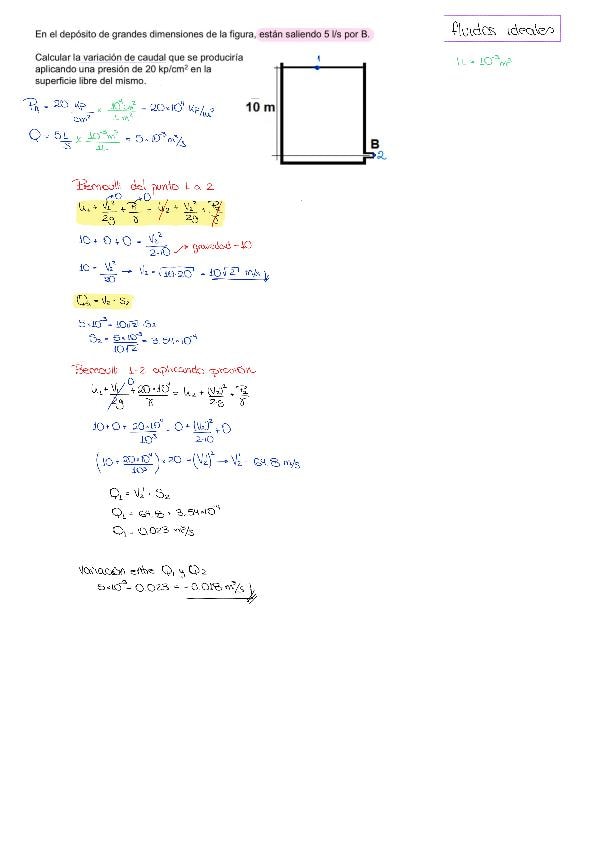 En el depósito de grandes dimensiones de la figura, están saliendo 5 l/s por B.
fluidos ideales
1L = 10⁻³m³
Calcular la variación de caudal que se produciría
aplicando una presión de 20 kp/cm² en la
superficie libre del mismo.
1
10 m
B
2
P₁ = 20 kp/cm² × 10⁴cm²/1m² = 20×10⁴ kp/m²
Q = 5L/s × 10⁻³m³/1L = 5×10⁻³ m³/s
Bernoulli del punto 1 a 2
h₁ + V₁²/2g + P₁/γ = h₂ + V₂²/2g + P₂/γ
→0 →0
10 + 0 + 0 = V₂²/2·10 → gravedad = 10
10 = V₂²/20 → V₂ = √10·20 = 10√2 m/s
Q₂ = V₂ · S₂
5×10⁻³ = 10√2 · S₂
S₂ = 5×10⁻³/10√2 = 3.54×10⁻⁴
Bernoulli 1-2 aplicando presión
h₁ + V₁/2g + 20×10⁴/γ = h₂ + (V₂)²/2g + P₂/γ
0
10 + 0 + 20×10⁴/10³ = 0 + (V₂)²/2·10 + 0
(10 + 20×10⁴/10³) × 20 = (V₂')² → V₂' = 64.8 m/s
Q₁ = V₂' · S₂
Q₁ = 64.8 × 3.54×10⁻⁴
Q₁ = 0.023 m³/s
Variación entre Q₁ y Q₂
5×10⁻³ - 0.023 = -0.018 m³/s